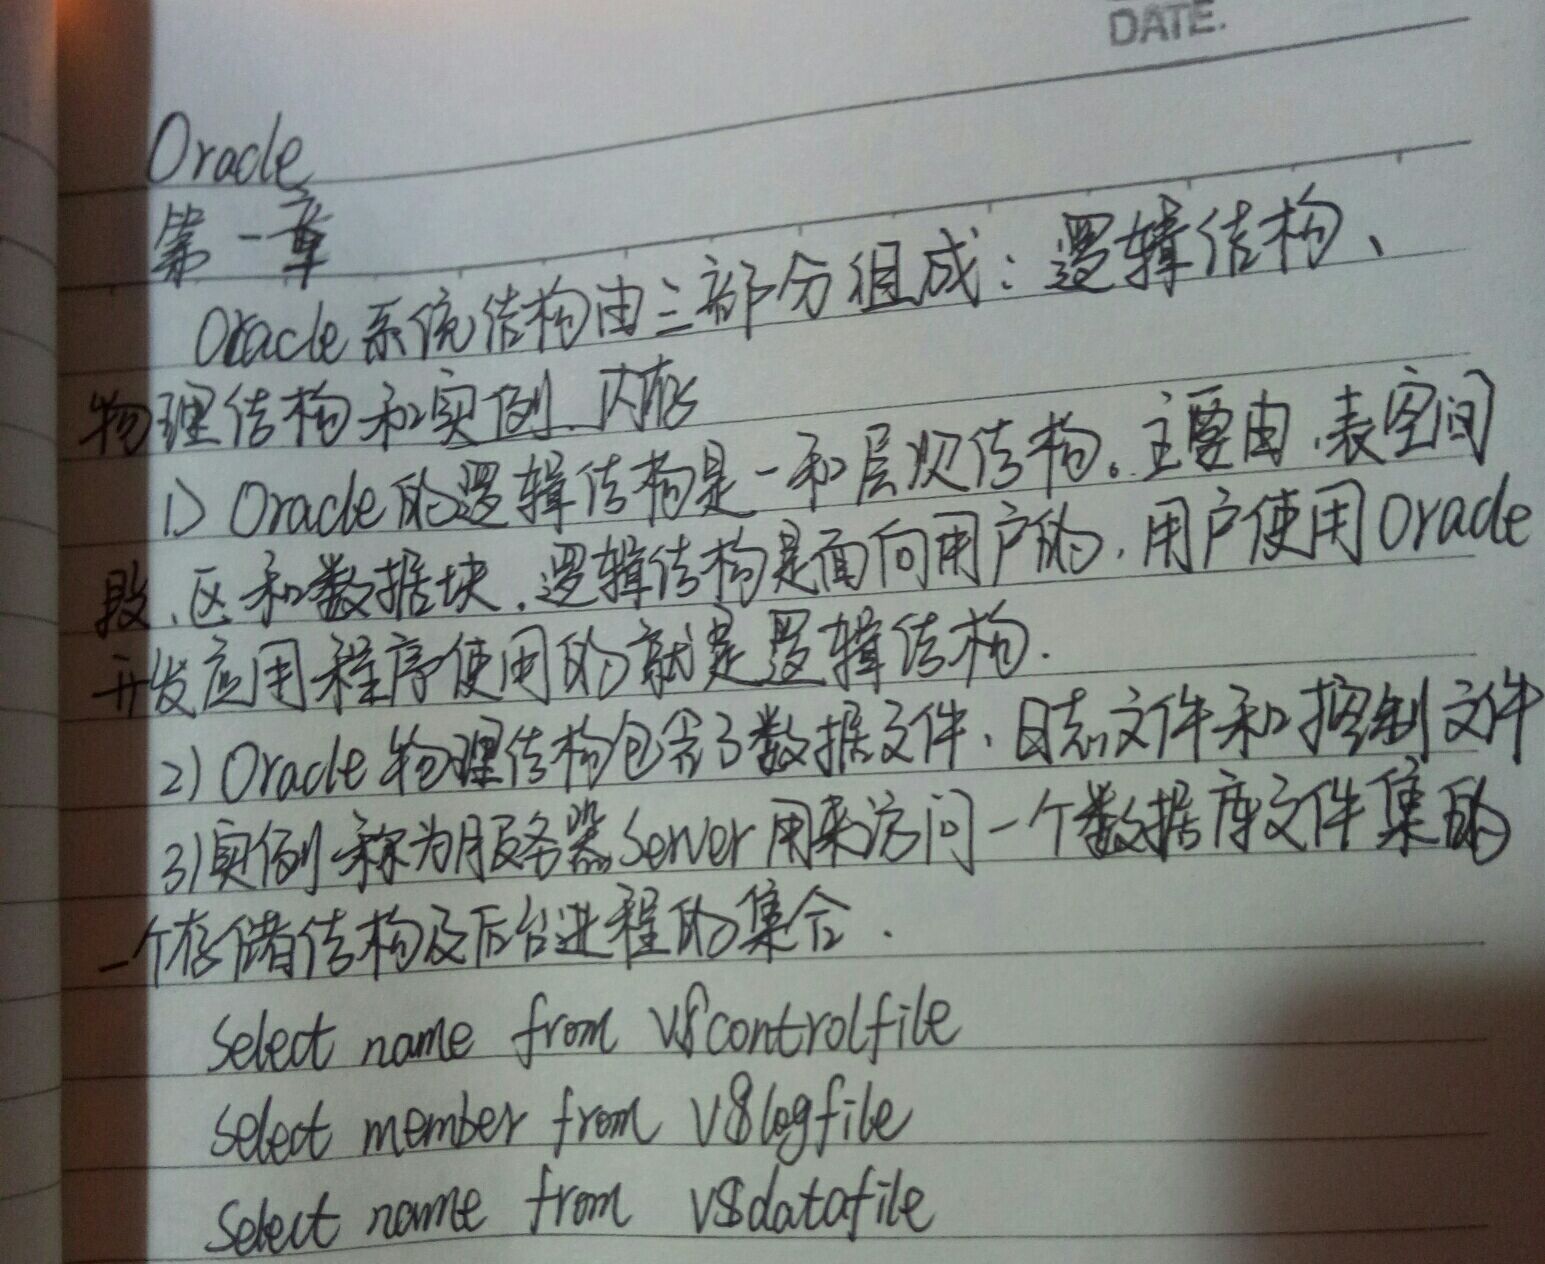 DATE.
Oracle
第一章
Oracle系统结构由三部分组成：逻辑结构、
物理结构和实例.内存
1) Oracle的逻辑结构是一和层次结构。主要由.表空间
段.区和数据块.逻辑结构是面向用户的.用户使用Oracle
开发应用程序使用的就是逻辑结构.
2) Oracle物理结构包含了数据文件、日志文件和控制文件
3)实例称为服务器Server用来访问一个数据库文件集的
一个存储结构及后台进程的集合.
Select name from V$controlfile
Select member from V$logfile
Select name from V$datafile